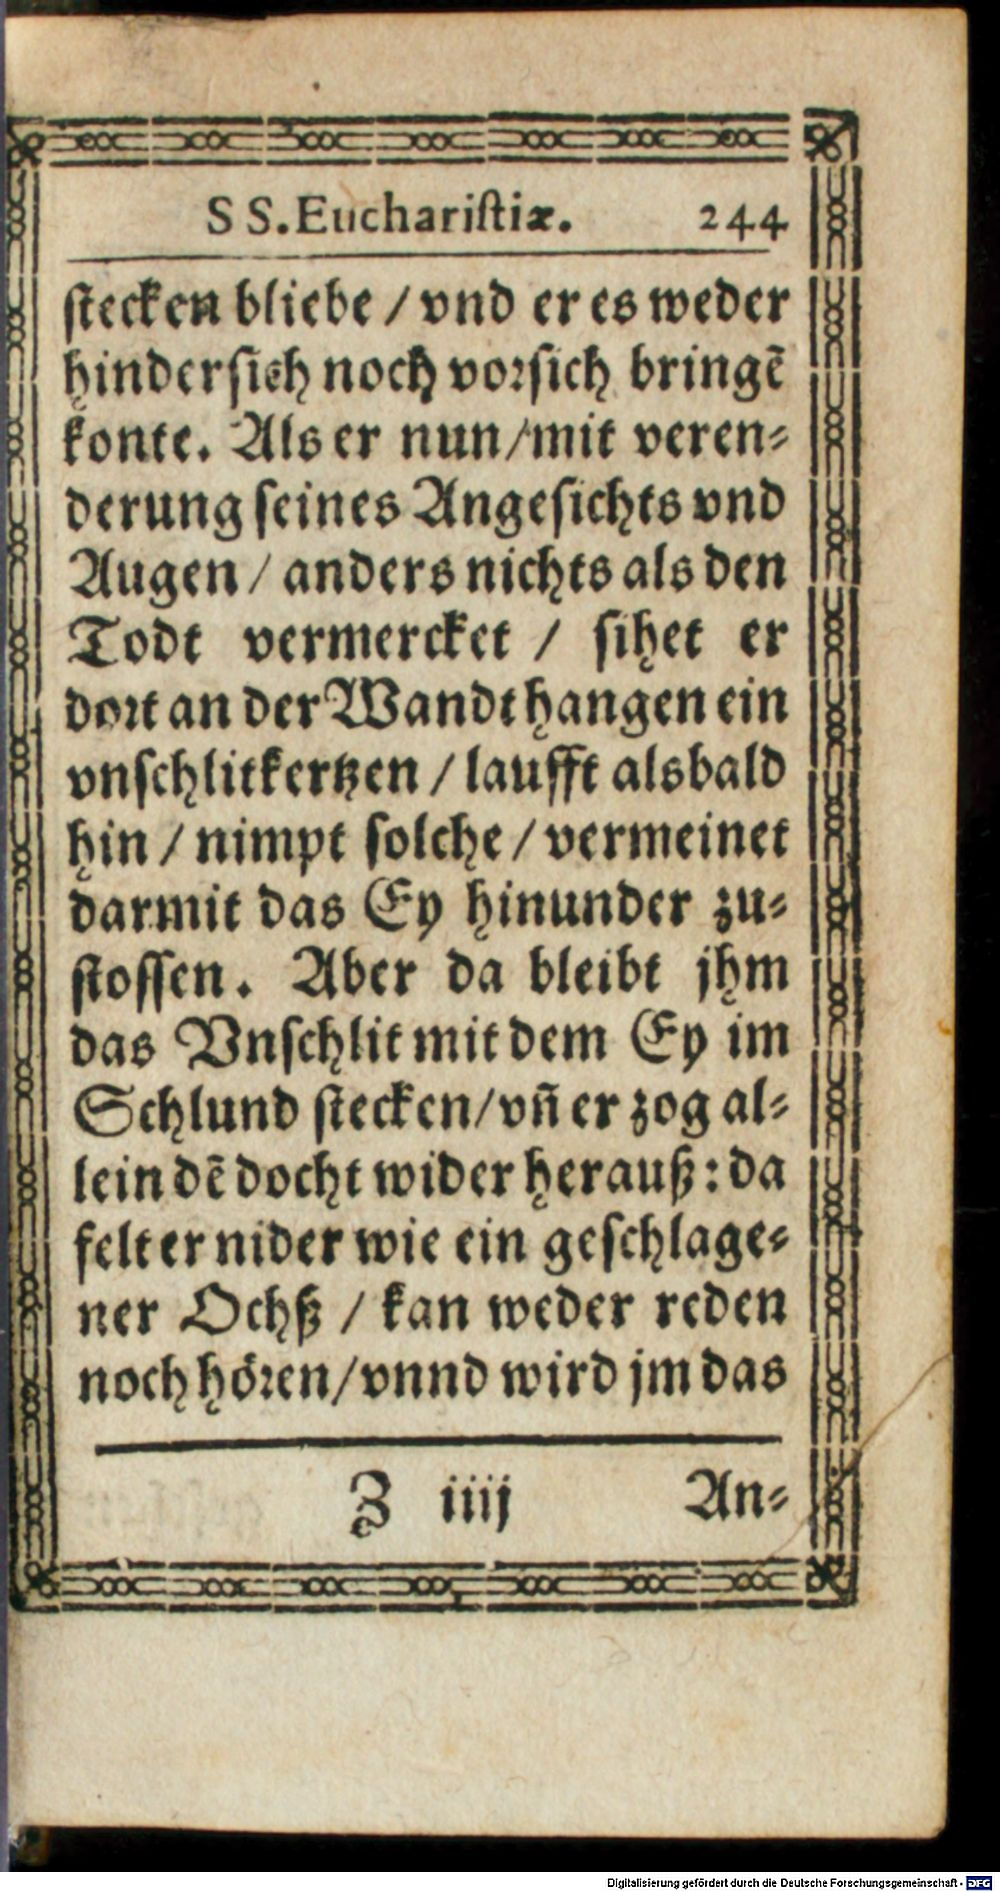 SS. Euchariſtiæ. 244
ſtecken bliebe / vnd er es weder
hinderſich noch vorſich bringẽ
konte. Als er nun / mit veren⸗
derung ſeines Angeſichts vnd
Augen / anders nichts als den
Todt vermercket / ſihet er
dort an der Wandt hangen ein
vnſchlitkertzen / laufft alsbald
hin / nimpt ſolche / vermeinet
darmit das Ey hinunder zu⸗
ſtoſſen. Aber da bleibt jhm
das Vnſchlit mit dem Ey im
Schlund ſtecken / vñ er zog al⸗
lein dẽ docht wider herauß: da
felt er nider wie ein geſchlage⸗
ner Ochß / kan weder reden
noch hören / vnnd wird jm das
Z iiij An⸗
Digitalisierung gefördert durch die Deutsche Forschungsgemeinschaft - DFG